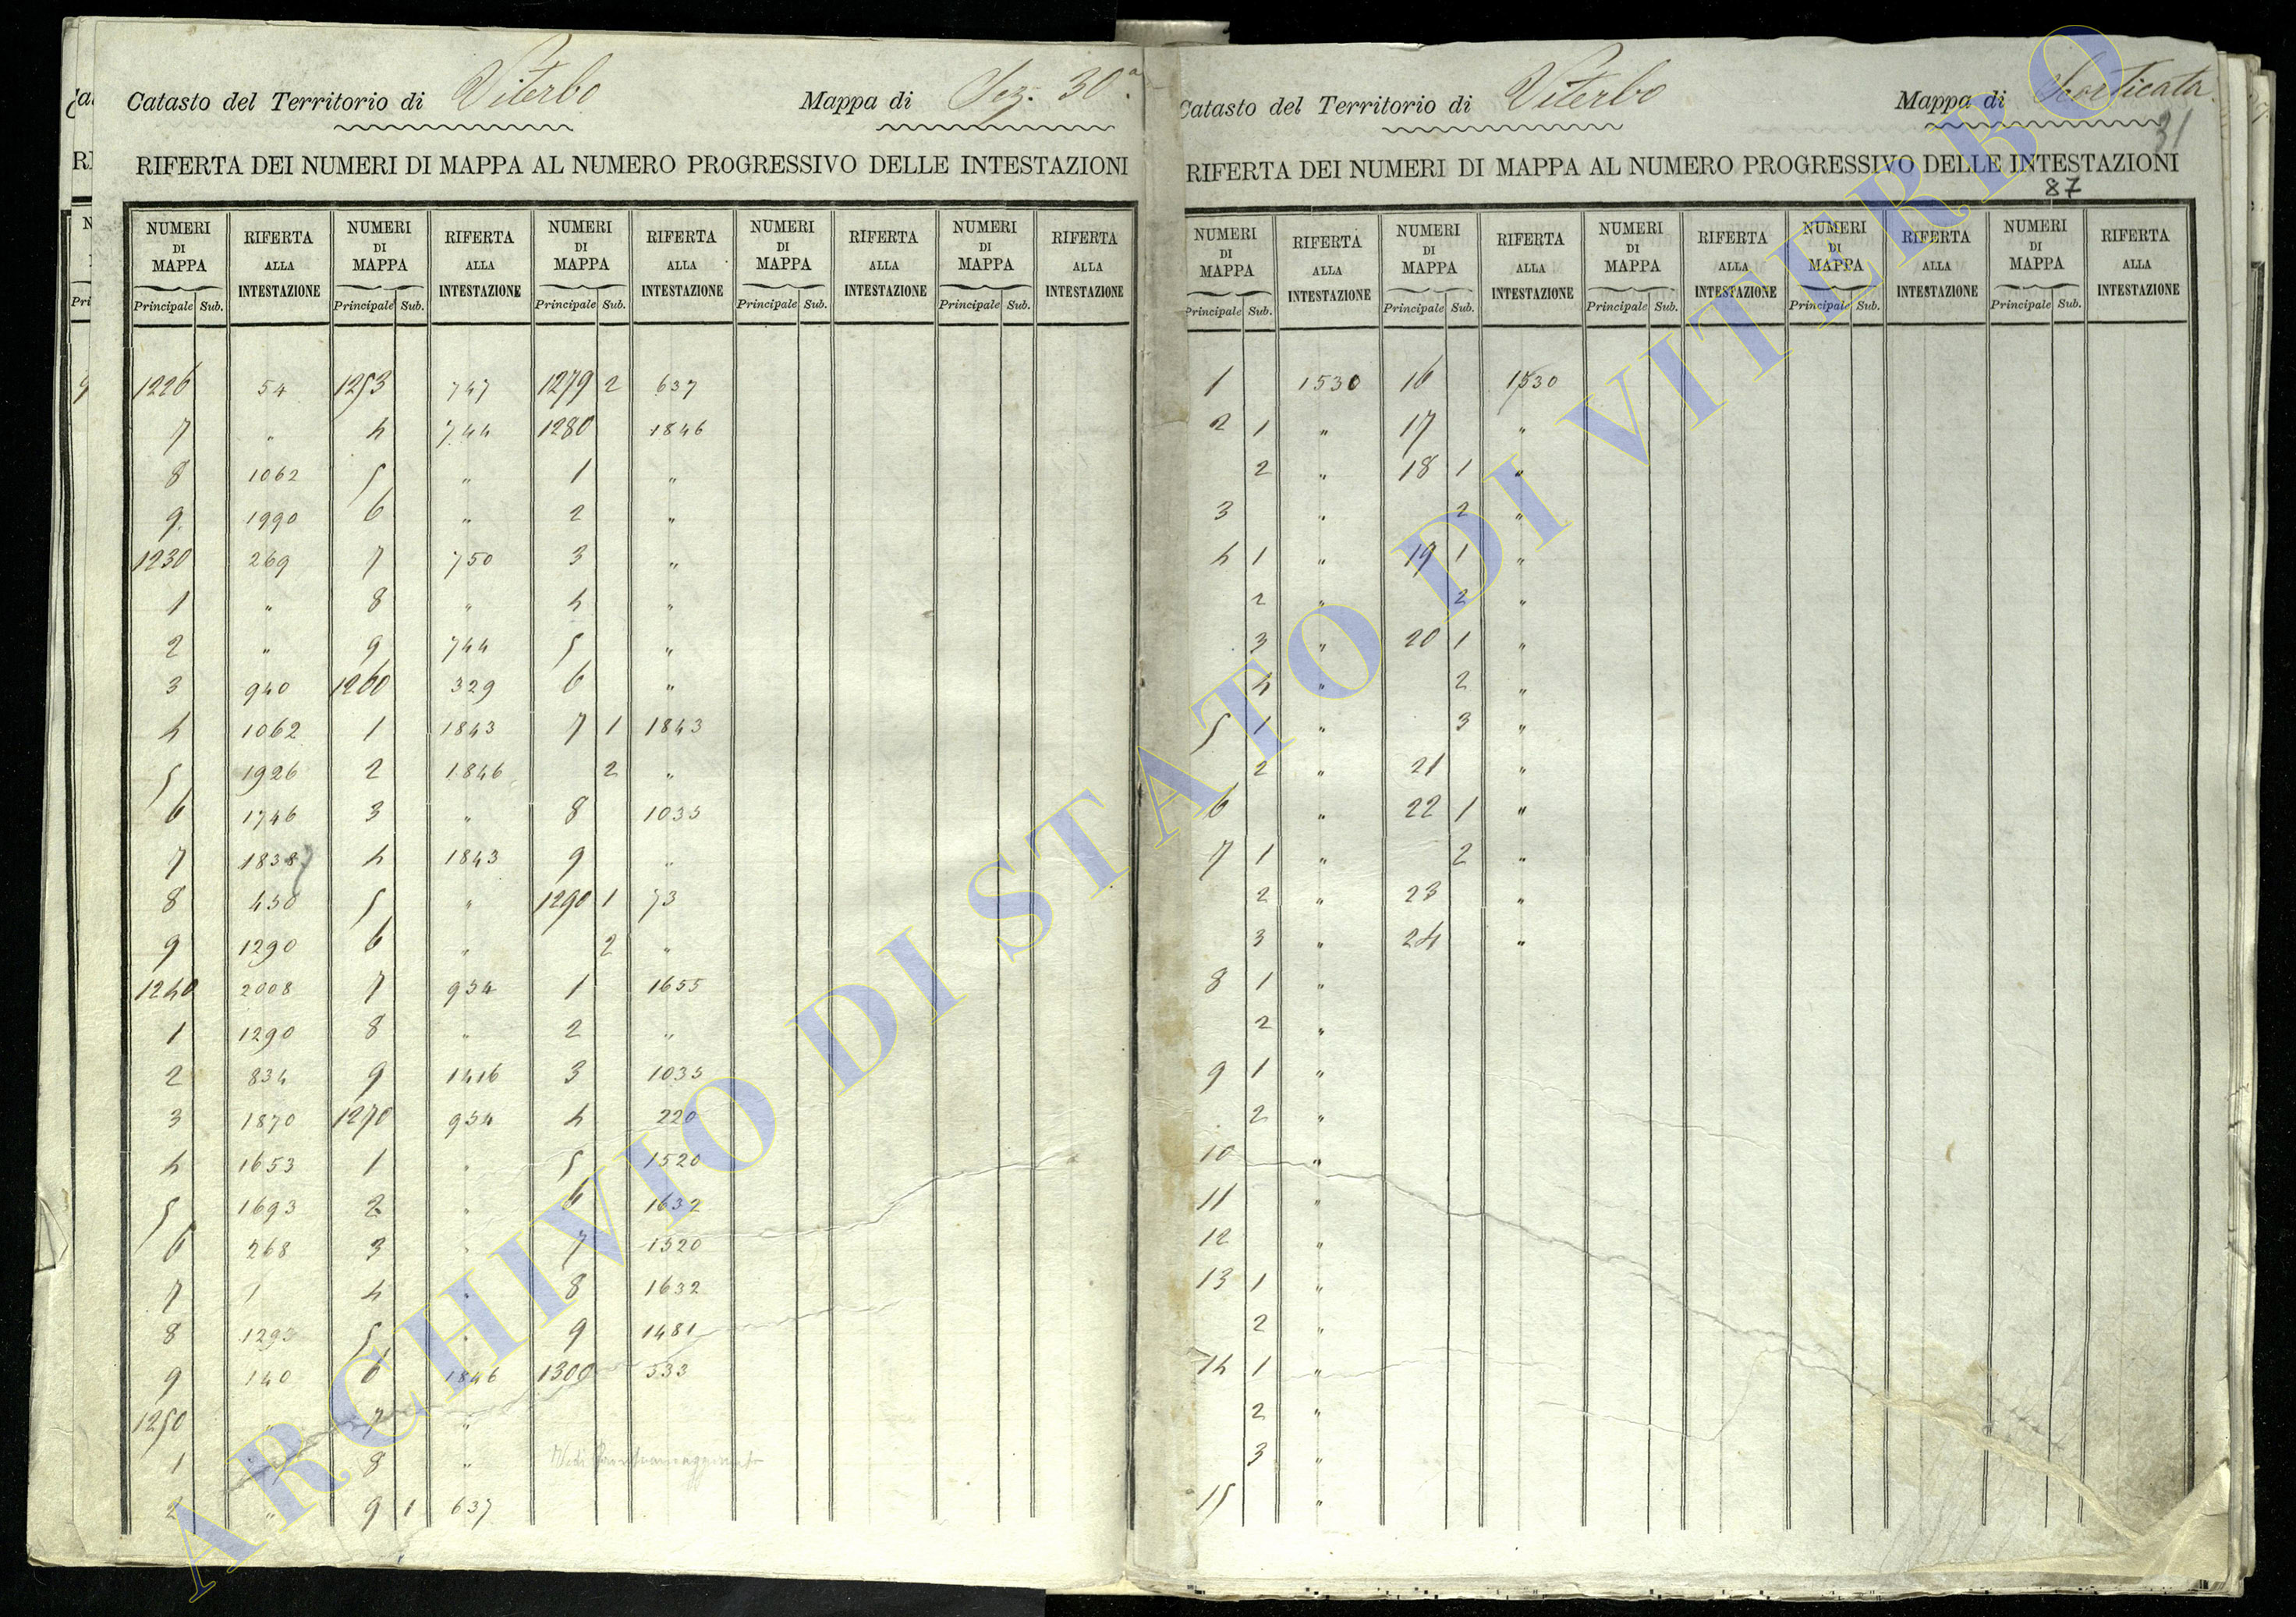 Catasto del Territorio di Viterbo Mappa di Sez. 30.a
RIFERTA DEI NUMERI DI MAPPA AL NUMERO PROGRESSIVO DELLE INTESTAZIONI
NUMERI DI MAPPA RIFERTA ALLA INTESTAZIONE NUMERI DI MAPPA RIFERTA ALLA INTESTAZIONE NUMERI DI MAPPA RIFERTA ALLA INTESTAZIONE NUMERI DI MAPPA RIFERTA ALLA INTESTAZIONE NUMERI DI MAPPA RIFERTA ALLA INTESTAZIONE
Principale Sub. Principale Sub. Principale Sub. Principale Sub. Principale Sub.
1226 54 1253 747 1279 2 637
7 " 4 744 1280 1846
8 1062 5 " 1 "
9 1990 6 " 2 "
1230 269 7 750 3 "
1 " 8 " 4 "
2 " 9 744 5 "
3 940 1260 329 6 "
4 1062 1 1843 7 1 1843
5 1926 2 1846 2 "
6 1746 3 " 8 1035
7 1838 4 1843 9 "
8 450 5 " 1290 1 73
9 1290 6 " 2 "
1240 2008 7 954 1 1655
1 1290 8 " 2 "
2 834 9 1416 3 1035
3 1870 1270 954 4 220
4 1653 1 " 5 1520
5 1693 2 " 6 1632
6 268 3 " 7 1520
7 1 4 " 8 1632
8 1295 5 " 9 1481
9 140 6 1846 1300 533
1250 " 7 "
1 " 8 "
2 " 9 1 637
Catasto del Territorio di Viterbo Mappa di Scorticata
31
RIFERTA DEI NUMERI DI MAPPA AL NUMERO PROGRESSIVO DELLE INTESTAZIONI
87
NUMERI DI MAPPA RIFERTA ALLA INTESTAZIONE NUMERI DI MAPPA RIFERTA ALLA INTESTAZIONE NUMERI DI MAPPA RIFERTA ALLA INTESTAZIONE NUMERI DI MAPPA RIFERTA ALLA INTESTAZIONE NUMERI DI MAPPA RIFERTA ALLA INTESTAZIONE
Principale Sub. Principale Sub. Principale Sub. Principale Sub. Principale Sub.
1 1530 16 1530
2 1 " 17 "
2 " 18 1 "
3 " 2 "
4 1 " 19 1 "
2 " 2 "
3 " 20 1 "
4 " 2 "
5 1 " 3 "
2 " 21 "
6 " 22 1 "
7 1 " 2 "
2 " 23 "
3 " 24 "
8 1 "
2 "
9 1 "
2 "
10 "
11 "
12 "
13 1 "
2 "
14 1 "
2 "
3 "
15 "
ARCHIVIO DI STATO DI VITERBO